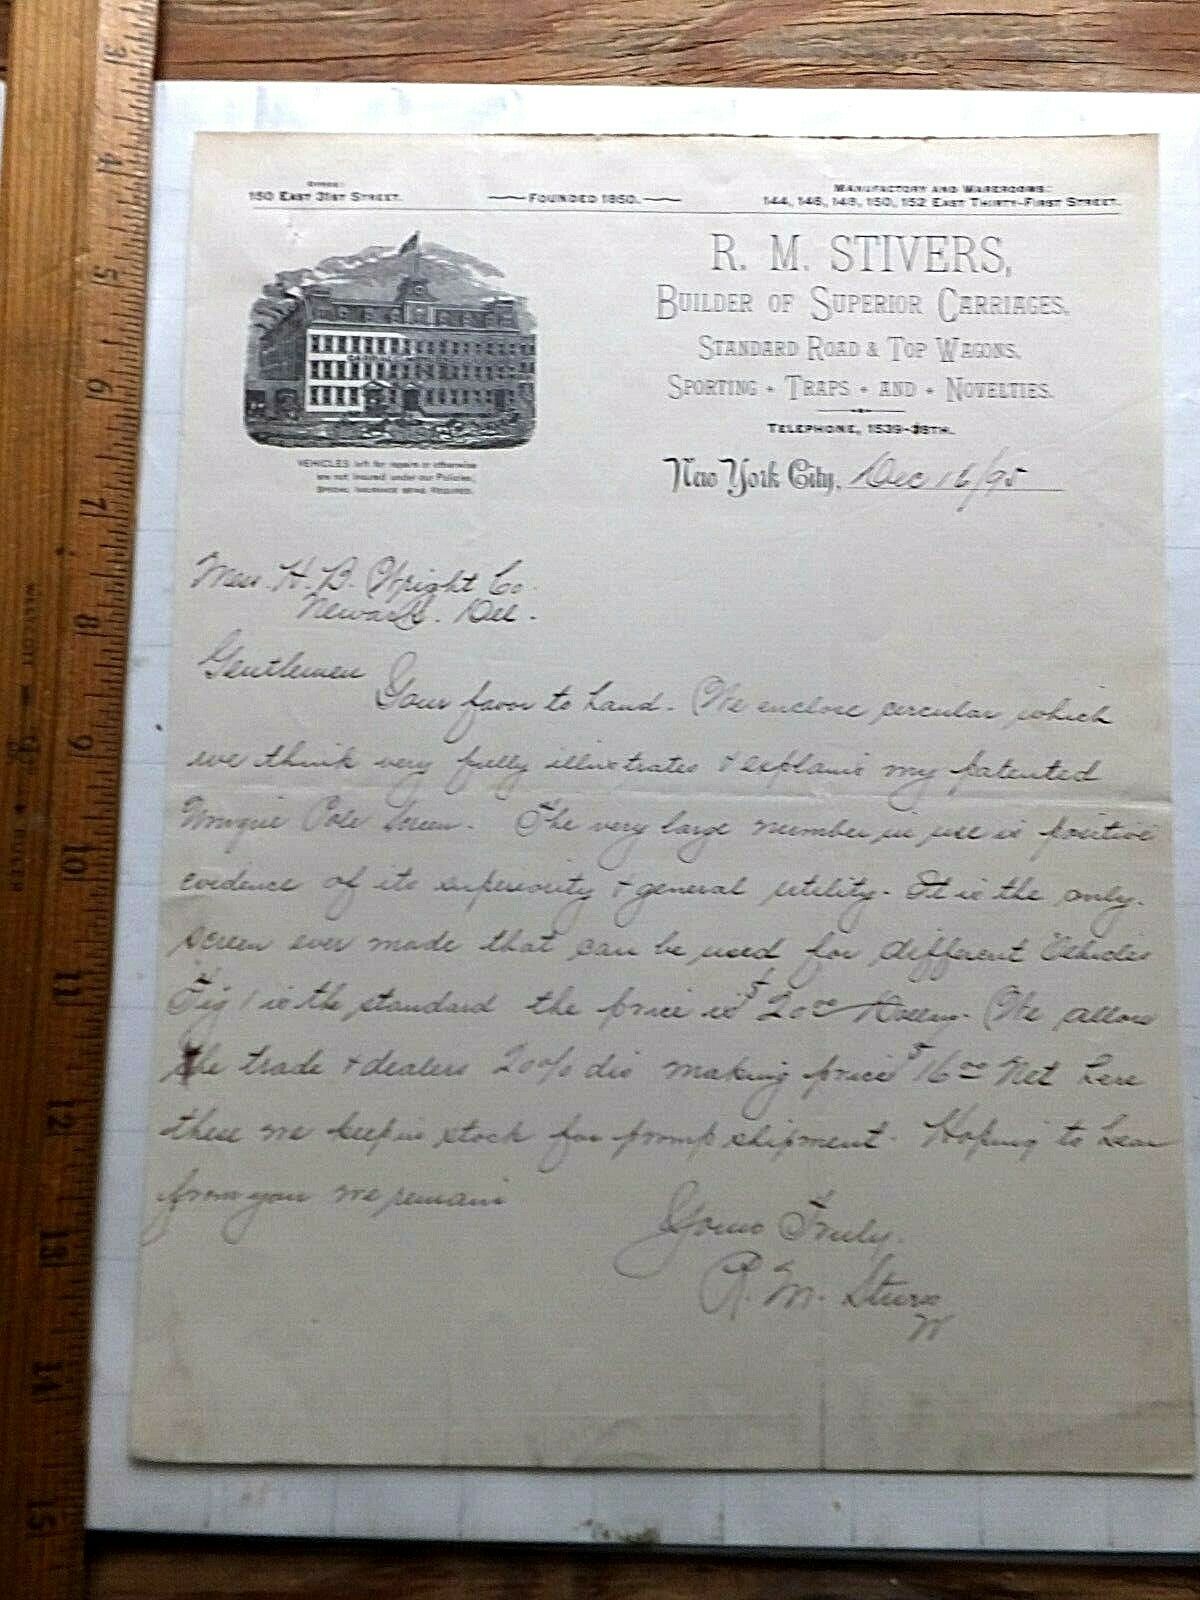 OFFICE:
150 EAST 31ST STREET.
FOUNDED 1850.
MANUFACTORY AND WAREROOMS:
144, 146, 148, 150, 152 EAST THIRTY-FIRST STREET.
R. M. STIVERS,
BUILDER OF SUPERIOR CARRIAGES,
STANDARD ROAD & TOP WAGONS,
SPORTING + TRAPS + AND + NOVELTIES.
TELEPHONE, 1539-38TH.
VEHICLES left for repairs or otherwise
are not insured under our Policies,
SPECIAL INSURANCE BEING REQUIRED.
New York City, Dec 16/95
Mess. H. B. Wright Co.
Newark. Del.
Gentlemen
Your favor to hand. We enclose circular which
we think very fully illustrates & explains my patented
Unique Pole Screen. The very large number in use is positive
evidence of its superiority & general utility. It is the only
screen ever made that can be used for different Vehicles
Fig 1 is the standard the price is $20.00. We allow
the trade & dealers 20% dis making price $16.00 Net here
these we keep in stock for promp shipment. Hoping to hear
from you we remain
Yours Truly.
R. M. Stivers
W
3
4
5
6
7
8
9
10
11
12
13
14
15
WESTCOTT
RULER